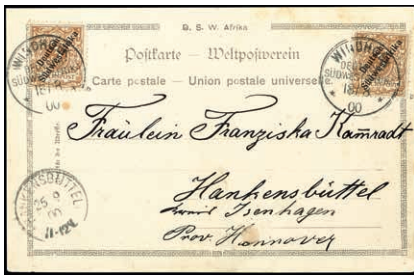 D. S. W. Afrika
Postkarte – Weltpostverein
Carte postale – Union postale universelle
WINDHOEK
00
WINDHOEK
00
Fräulein Franziska Kam̅radt
Hankensbüttel
Kreis Isenhagen
Prov. Hannover
HANKENSBÜTTEL
25 9
00
11-12V